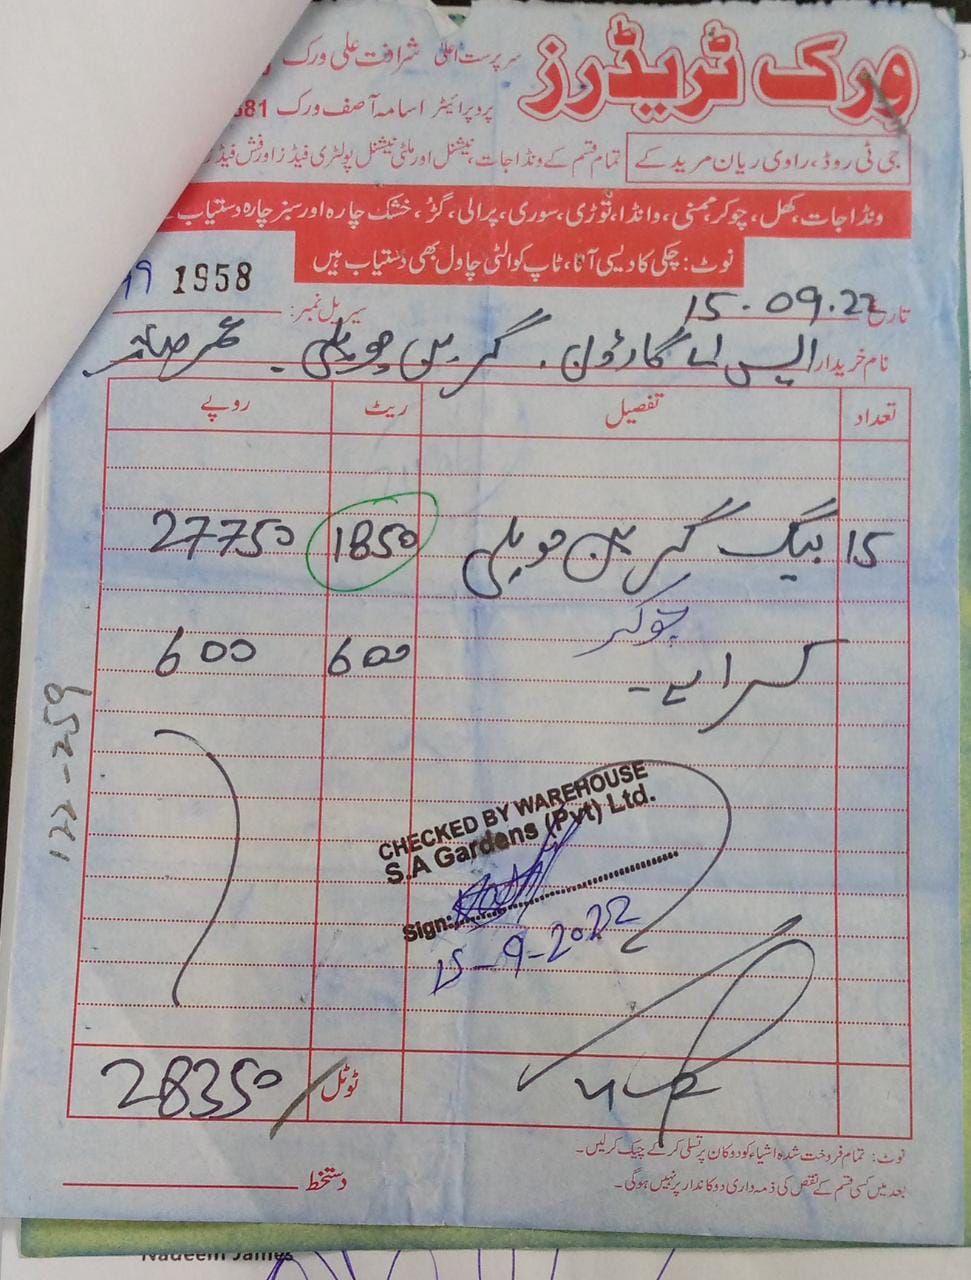 ورک ٹریڈرز
سرپرست اعلیٰ شرافت علی ورک
پروپرائیٹر اسامہ آصف ورک 681
جی ٹی روڈ، راوی ریان مریدکے
تمام قسم کے ونڈا جات، نیشنل اور ملٹی نیشنل پولٹری فیڈز اور فش فیڈز
ونڈا جات، کھل، چوکر، ممنی، وانڈا، توڑی، سوری، پرالی، گڑ، خشک چارہ اور سبز چارہ دستیاب ہے
نوٹ: چکی کا دیسی آٹا، ٹاپ کوالٹی چاول بھی دستیاب ہیں
تاریخ 15-09.22 سیریل نمبر: 1958
نام خریدار ایس اے گارڈن. گرین حویلی -
تعداد تفصیل ریٹ روپے
15 بیگ گرین حویلی 1850 27750
چوکر
کرایہ - 600 600
122-259
CHECKED BY WAREHOUSE
S.A Gardens (Pvt) Ltd.
Sign:
15-9-2022
ٹوٹل 28350
نوٹ: تمام فروخت شدہ اشیاء کو دوکان پر تسلی کر کے چیک کر لیں۔
بعد میں کسی قسم کے نقص کی ذمہ داری دوکاندار پر نہیں ہوگی۔
دستخط
Nadeem James